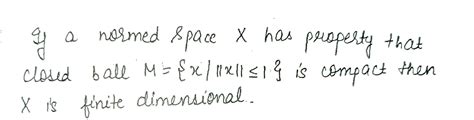 If a normed space X has property that
closed ball M = {x / ||x|| ≤ 1} is compact then
X is finite dimensional.